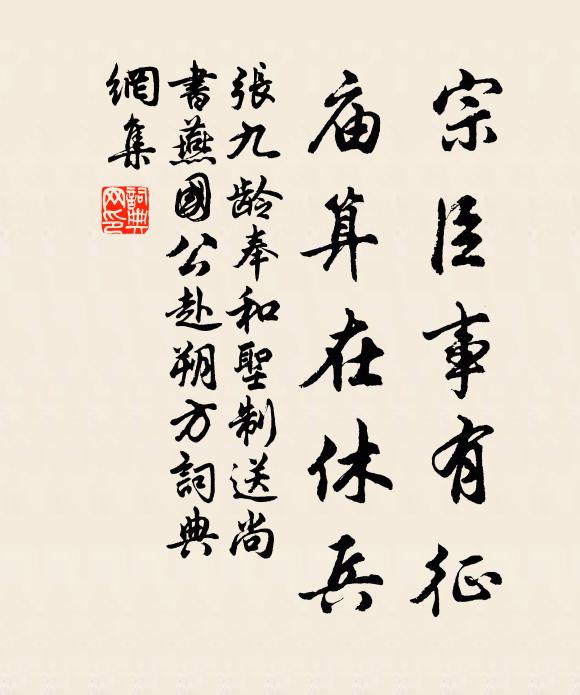 宗臣事有征
庙算在休兵
張九龄奉和聖制送尚
書燕國公赴朔方詞典
網集
詞典
网印